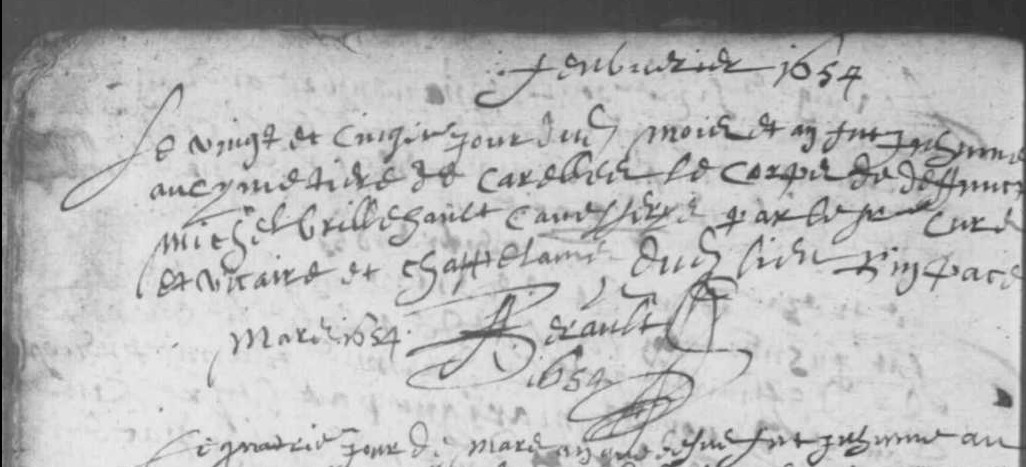 Febvrier 1654
Le vingt et cinqie jour dud mois et an fut inhumé
au cymetiere de Carelles le corps de deffunct
Michel brillehault par le sr curé
et vicaire et chappelains dud lieu R in pace
Mars 1654 Herault
1654
Le jour de mars an que dessus fut inhumé au